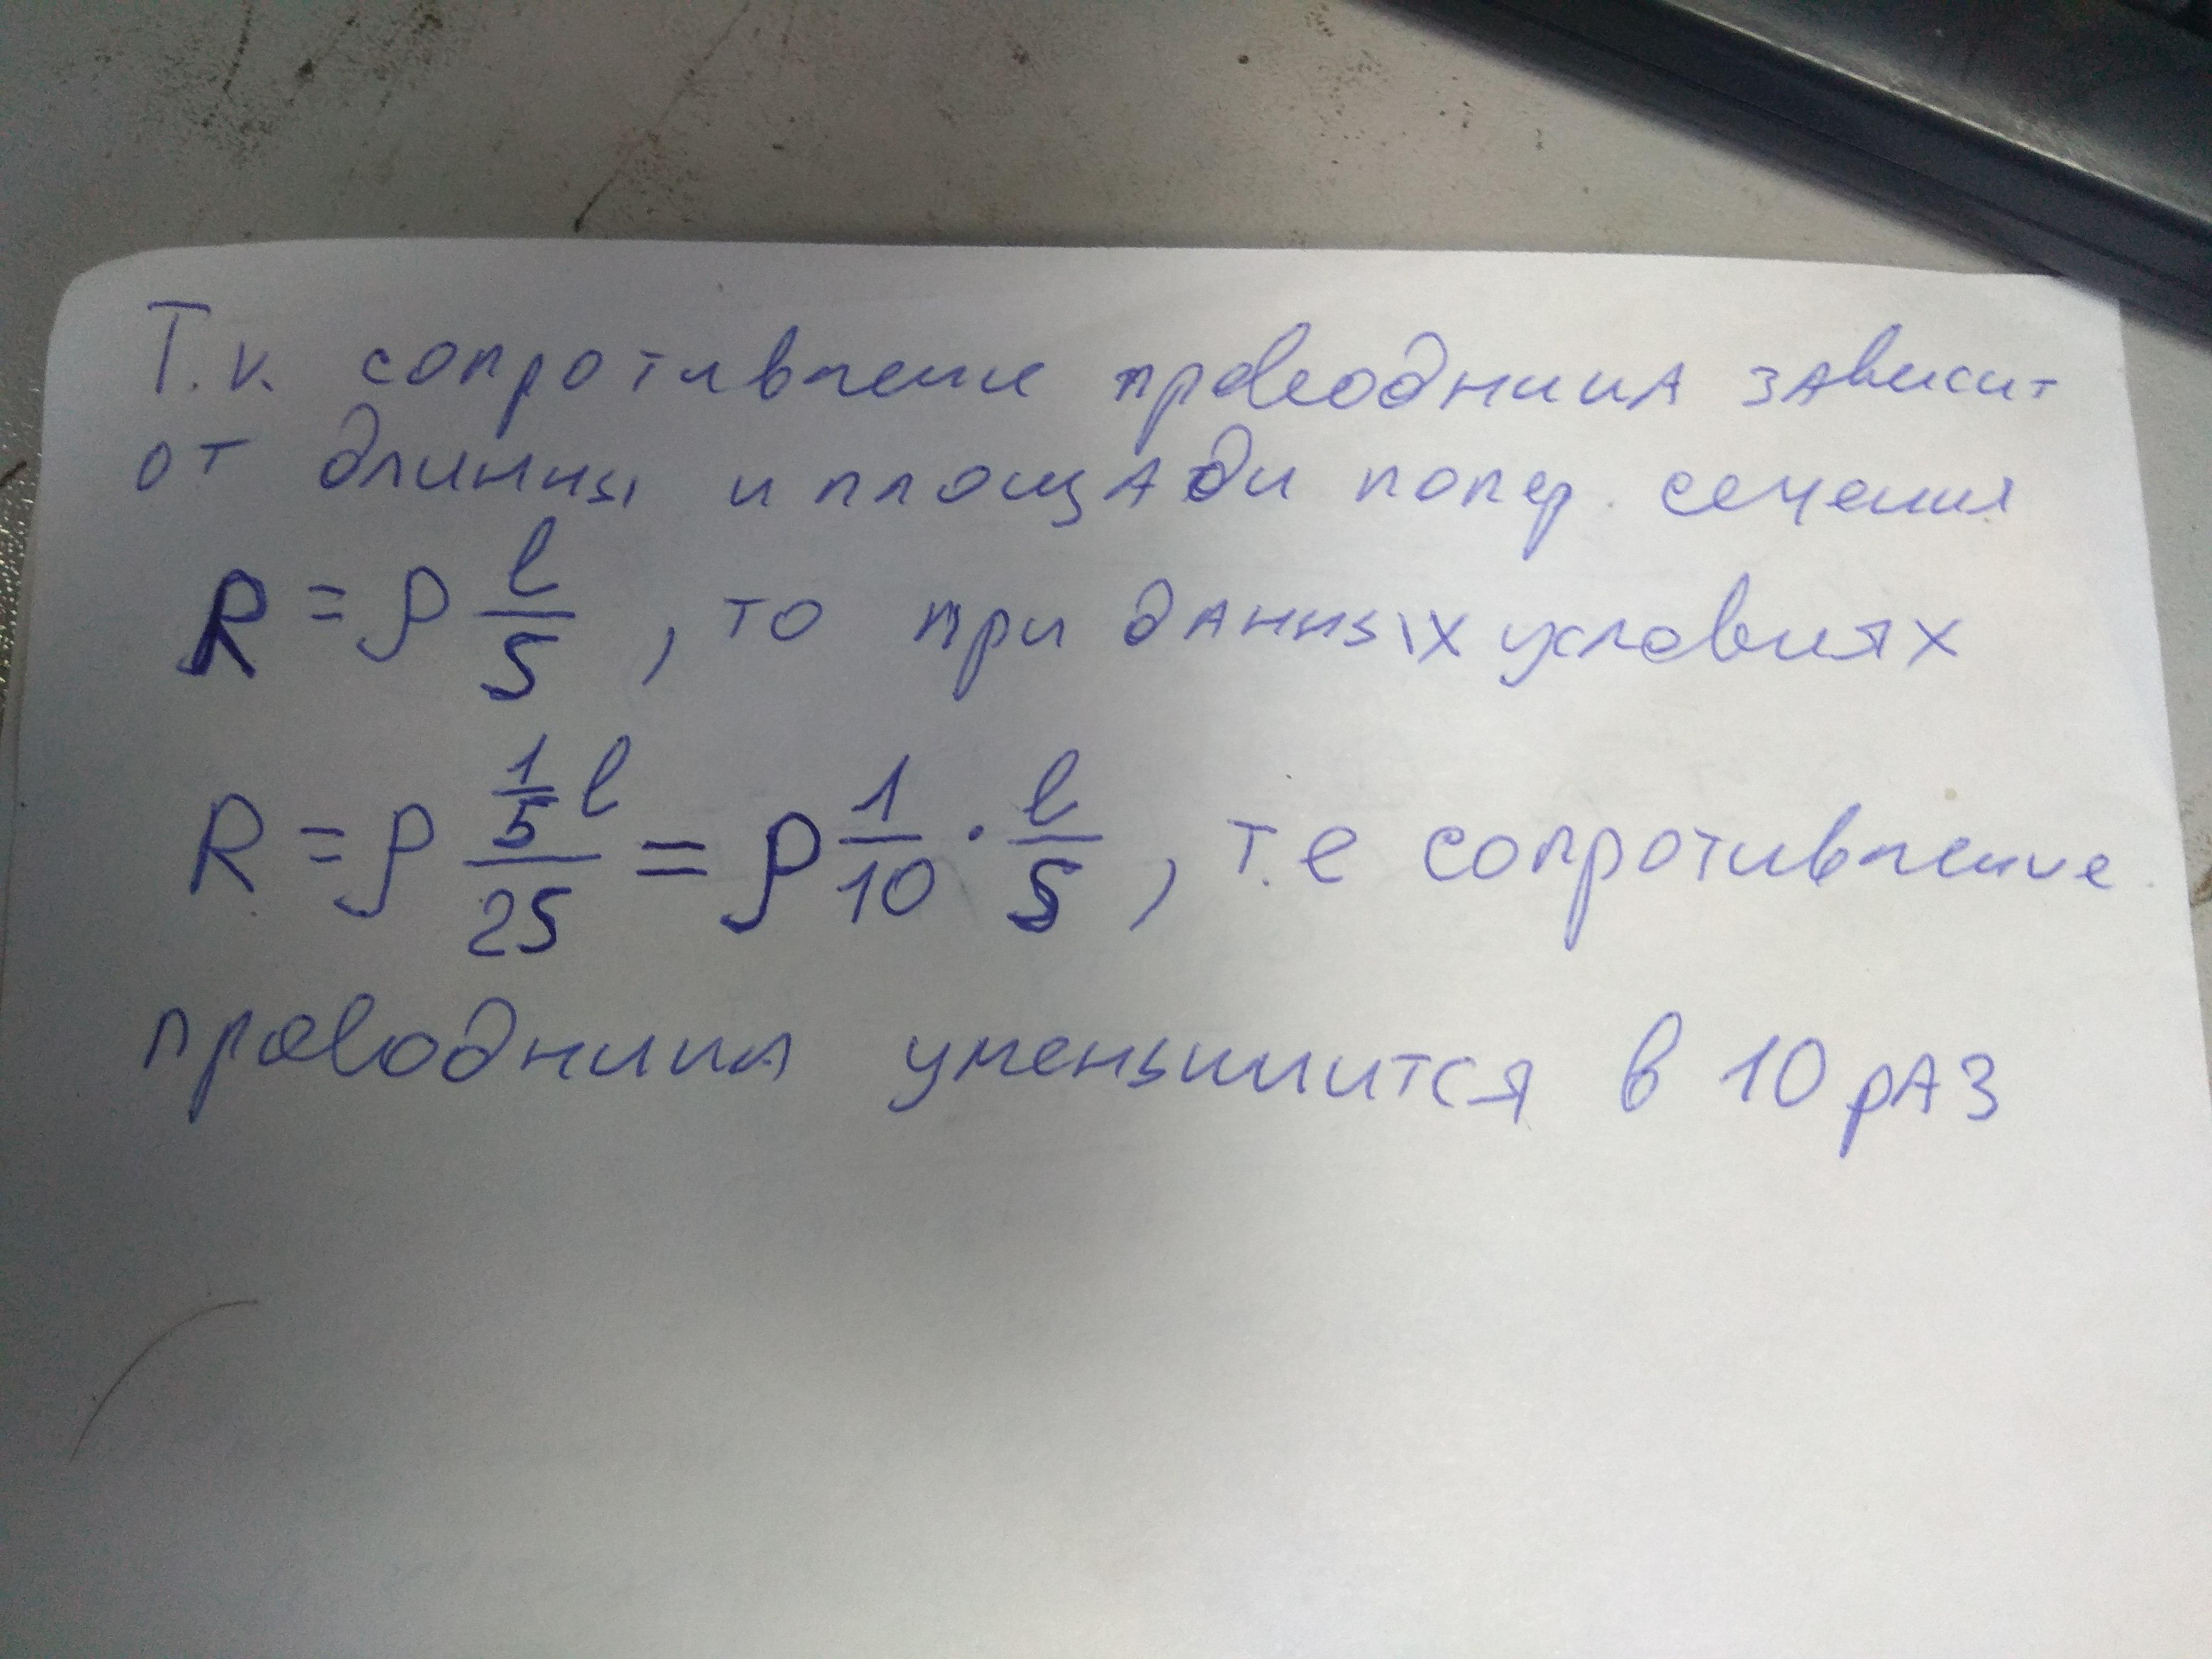 Т.к. сопротивление проводника зависит
от длинны и площади попер. сечения
R = ρ l/S , то при данных условиях
R = ρ (1/5 l)/(2S) = ρ 1/10 · l/S , т.е сопротивление
проводника уменьшится в 10 раз